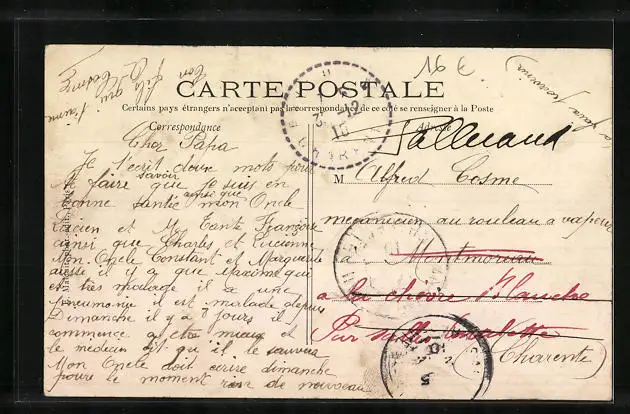 16 €
CARTE POSTALE
Certains pays étrangers n'acceptant pas la correspondance de ce côté se renseigner à la Poste
Correspondance
Adresse
Cher Papa
Je t'ecrit deux mots pour
te faire savoir que je suis en
bonne santé ainsi que mon Oncle
Lucien et M Tante Françoise
ainsi que Charles et Lucienne
Mon Oncle Constant et Marguerite
aussi il y a que Maxime qui
est très malade il a une
pneumonie il est malade depuis
Dimanche il y a 8 jours il
commence a etre mieux et
le médecin dit que il le sauvera
Mon Oncle doit ecrire dimanche
pour le moment rien de nouveau
Ton fils qui
t'aime
M Alfred Cosme
mecanicien au rouleau a vapeur
à Montmoreau
a la chevre Blanche
Par
(Charente)